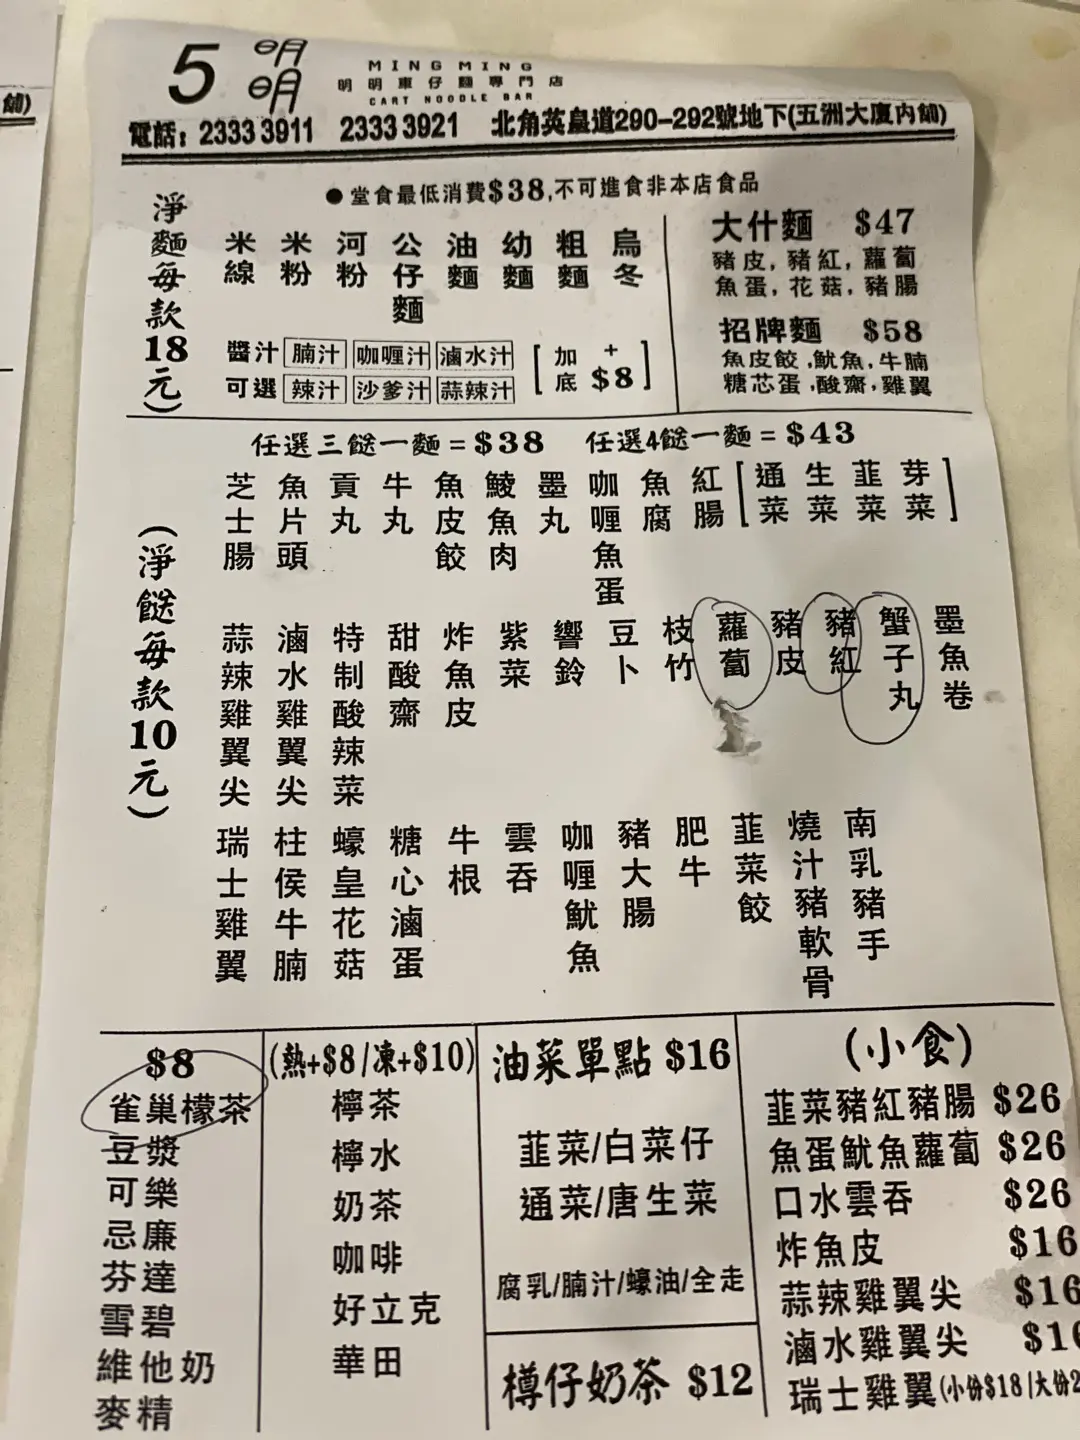 舖)
5 明明
MING MING
明明車仔麵專門店
CART NOODLE BAR
電話：2333 3911 2333 3921 北角英皇道290-292號地下(五洲大廈內舖)
●堂食最低消費$38,不可進食非本店食品
淨麵每款18元)
米線 米粉 河粉 公仔麵 油麵 幼麵 粗麵 烏冬
醬汁可選
腩汁 咖喱汁 滷水汁
辣汁 沙爹汁 蒜辣汁
[加底 +$8]
大什麵 $47
豬皮, 豬紅, 蘿蔔
魚蛋, 花菇, 豬腸
招牌麵 $58
魚皮餃,魷魚,牛腩
糖芯蛋,酸齋,雞翼
任選三餸一麵=$38 任選4餸一麵=$43
(淨餸每款10元)
芝士腸 魚片頭 貢丸 牛丸 魚皮餃 鯪魚肉 墨丸 咖喱魚蛋 魚腐 紅腸 [通菜 生菜 韮菜 芽菜]
蒜辣雞翼尖 滷水雞翼尖 特制酸辣菜 甜酸齋 炸魚皮 紫菜 響鈴 豆卜 枝竹 蘿蔔 豬皮 豬紅 蟹子丸 墨魚卷
瑞士雞翼 柱侯牛腩 蠔皇花菇 糖心滷蛋 牛根 雲吞 咖喱魷魚 豬大腸 肥牛 韮菜餃 燒汁豬軟骨 南乳豬手
$8
雀巢檬茶
豆漿
可樂
忌廉
芬達
雪碧
維他奶
麥精
(熱+$8/凍+$10)
檸茶
檸水
奶茶
咖啡
好立克
華田
油菜單點 $16
韮菜/白菜仔
通菜/唐生菜
腐乳/腩汁/蠔油/全走
樽仔奶茶 $12
(小食)
韮菜豬紅豬腸 $26
魚蛋魷魚蘿蔔 $26
口水雲吞 $26
炸魚皮 $16
蒜辣雞翼尖 $16
滷水雞翼尖
瑞士雞翼(小份$18/大份